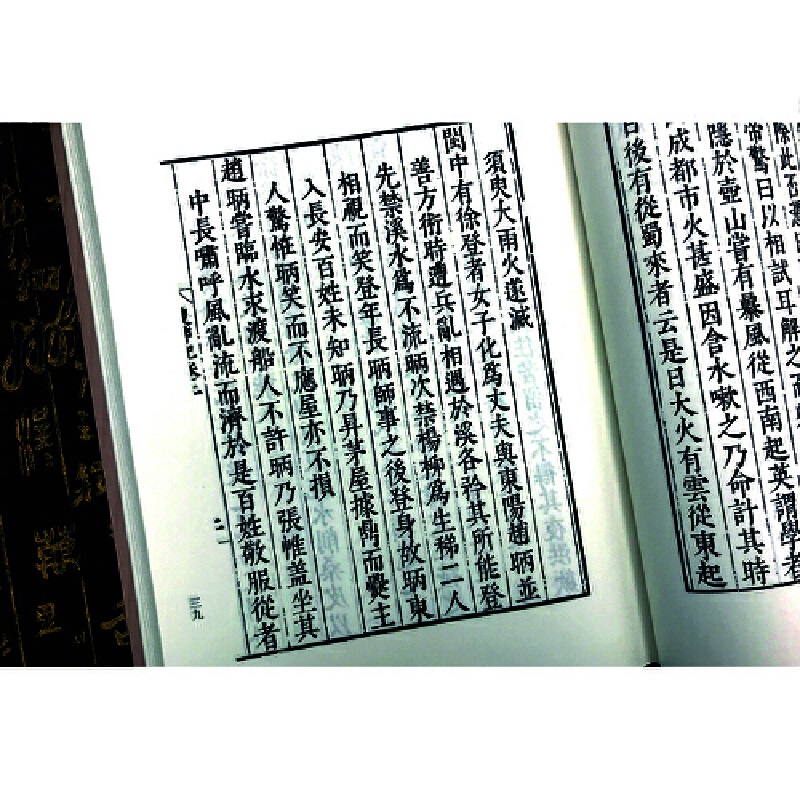 除此否
常驚日以相試耳解之而
隱於壺山嘗有暴風從西南起英謂學者
成都市火甚盛因含水嗽之乃命計其時
日後有從蜀來者云是日大火有雲從東起
須臾大雨火遂滅
閩中有徐登者女子化為丈夫與東陽趙昞並
善方術時遭兵亂相遇於溪各矜其所能登
先禁溪水為不流昞次禁楊柳為生稊二人
相視而笑登年長昞師事之後登身故昞東
入長安百姓未知昞乃昇茅屋據鼎而爨主
人驚怪昞笑而不應屋亦不損
趙昞嘗臨水求渡船人不許昞乃張帷蓋坐其
中長嘯呼風亂流而濟於是百姓敬服從者
三九